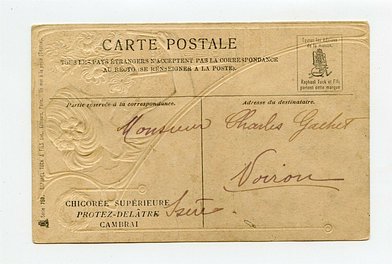 CARTE POSTALE
TOUS LES PAYS ÉTRANGERS N'ACCEPTENT PAS LA CORRESPONDANCE
AU RECTO. SE RENSEIGNER A LA POSTE.
Toutes les Éditions
de la maison
Raphael Tuck et Fils
portent cette marque
Partie réservée à la correspondance.
Adresse du destinataire.
Monsieur Charles Gachet
Voiron
Isère.
CHICORÉE SUPÉRIEURE
PROTEZ-DELATRE
CAMBRAI